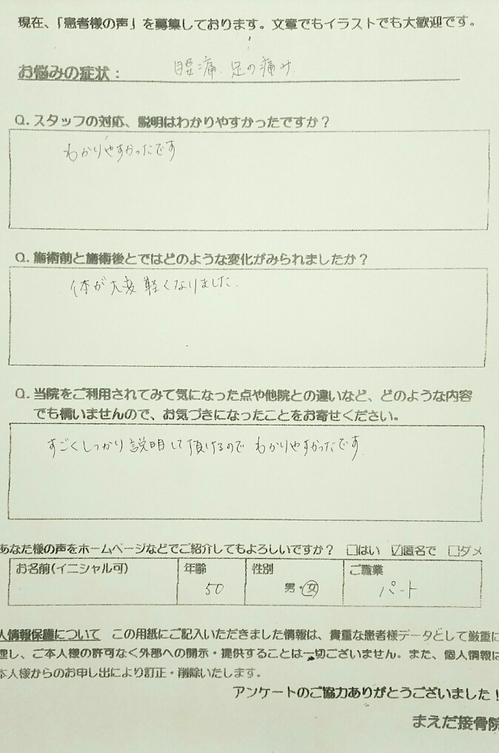 現在、「患者様の声」を募集しております。文章でもイラストでも大歓迎です。
お悩みの症状： 腰痛、足の痛み
Q. スタッフの対応、説明はわかりやすかったですか？
わかりやすかったです
Q. 施術前と施術後とではどのような変化がみられましたか？
体が大変軽くなりました。
Q. 当院をご利用されてみて気になった点や他院との違いなど、どのような内容
でも構いませんので、お気づきになったことをお寄せください。
すごくしっかり説明して頂けるので わかりやすかったです
あなた様の声をホームページなどでご紹介してもよろしいですか？ □はい ☑匿名で □ダメ
お名前(イニシャル可) 年齢 性別 ご職業
50 男・女 パート
人情報保護について この用紙にご記入いただきました情報は、貴重な患者様データとして厳重に
理し、ご本人様の許可なく外部への開示・提供することは一切ございません。また、個人情報は
本人様からのお申し出により訂正・削除いたします。
アンケートのご協力ありがとうございました！
まえだ接骨院